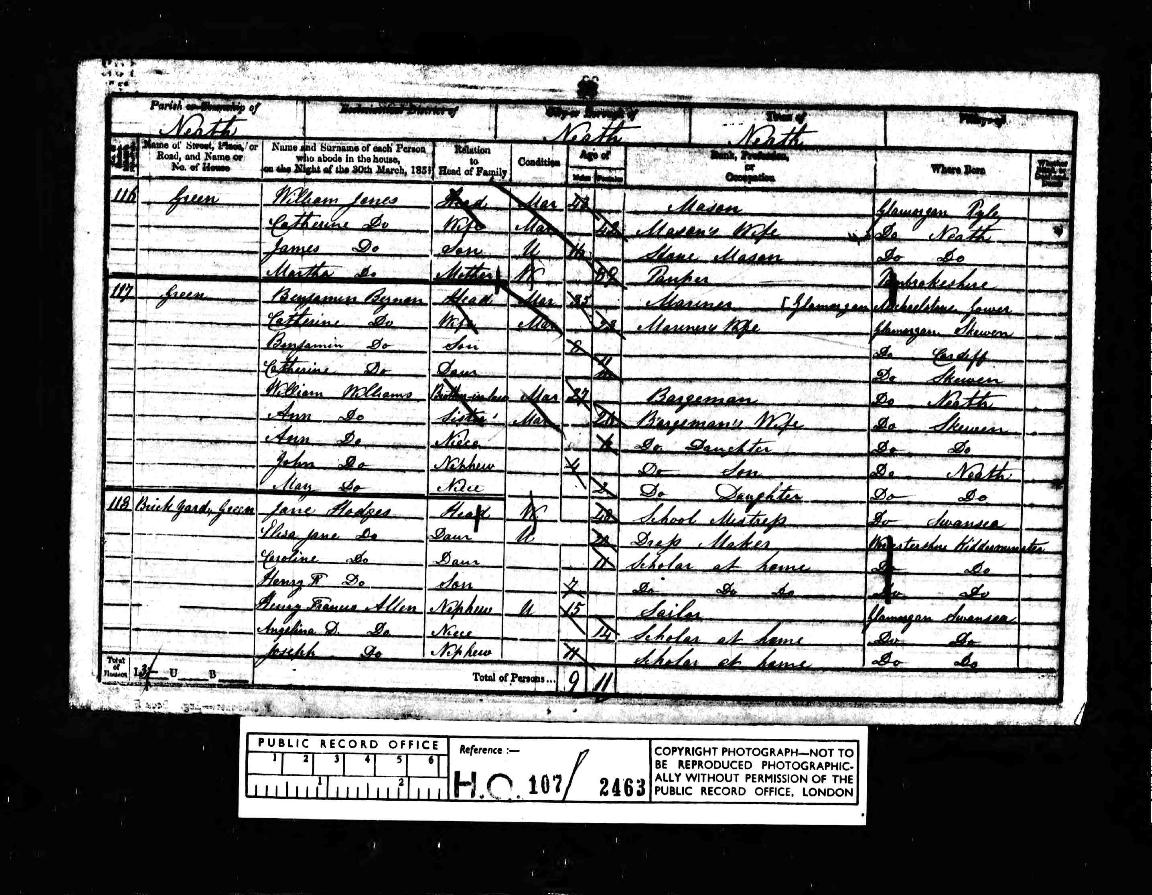 Parish or Township of
Ecclesiastical District of
City or Borough of
Town of
Village of
Neath
Neath
Neath
Name of Street, Place, or Road, and Name or No. of House
Name and Surname of each Person who abode in the house, on the Night of the 30th March, 1851
Relation to Head of Family
Condition
Age of
Males Females
Rank, Profession, or Occupation
Where Born
116 Green William Jones Head Mar Mason Glamorgan Pyle
Catherine Do Wife Mar 42 Mason's Wife Do Neath
James Do Son U 16 Stone Mason Do Do
Martha Do Mother W Pauper Pembrokeshire
117 Green Benjamin Head Mar Mariner [Glamorgan Michaelstone Lower
Catherine Do Wife Mar Mariner's Wife Glamorgan Skewen
Benjamin Do Son Do Cardiff
Catherine Do Daur Do Skewen
William Williams Brother-in-law Mar 27 Bargeman Do Neath
Ann Do Sister Mar Bargeman's Wife Do Skewen
Ann Do Niece Do Daughter Do Do
John Do Nephew 4 Do Son Do Neath
May Do Niece 2 Do Daughter Do Do
118 Brick Yard, Green Jane Hodges Head W School Mistress Do Swansea
Eliza Jane Do Daur U Dress Maker Worcestershire Kidderminster
Caroline Do Daur 11 Scholar at home Do Do
Henry Do Son 7 Do Do Do Do Do
Henry Francis Allen Nephew U 15 Sailor Glamorgan Swansea
Angelina D. Do Niece 14 Scholar at home Do Do
Joseph Do Nephew 11 Scholar at home Do Do
Total of Houses I 3 U B Total of Persons... 9 11
PUBLIC RECORD OFFICE
1 2 3 4 5 6
1 2
Reference :—
H.O. 107/2463
COPYRIGHT PHOTOGRAPH—NOT TO
BE REPRODUCED PHOTOGRAPHIC-
ALLY WITHOUT PERMISSION OF THE
PUBLIC RECORD OFFICE, LONDON